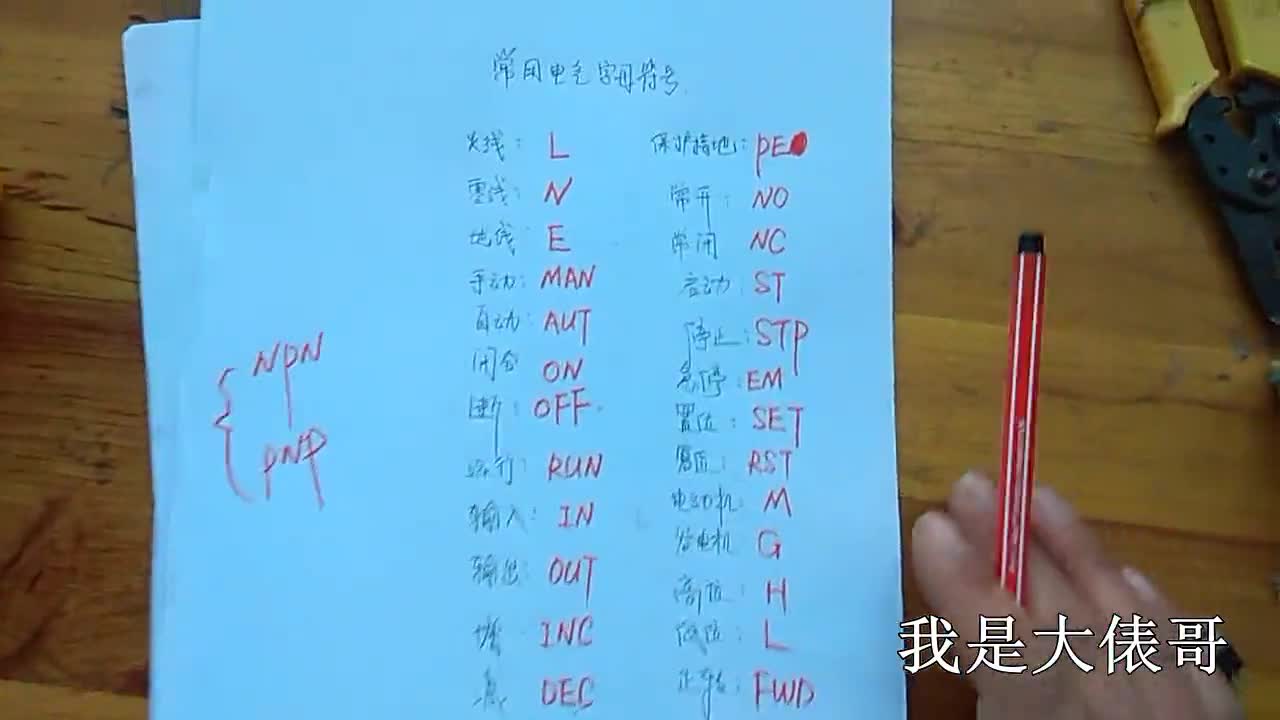 常用电气字母符号
火线: L
零线: N
地线: E
手动: MAN
自动: AUT
闭合 ON
断: OFF
运行: RUN
输入: IN
输出: OUT
增 INC
减 DEC
保护接地: PE
常开: NO
常闭 NC
启动: ST
停止: STP
急停: EM
置位: SET
复位: RST
电动机: M
发电机 G
高位: H
低位: L
正转: FWD
NPN
PNP
我是大俵哥